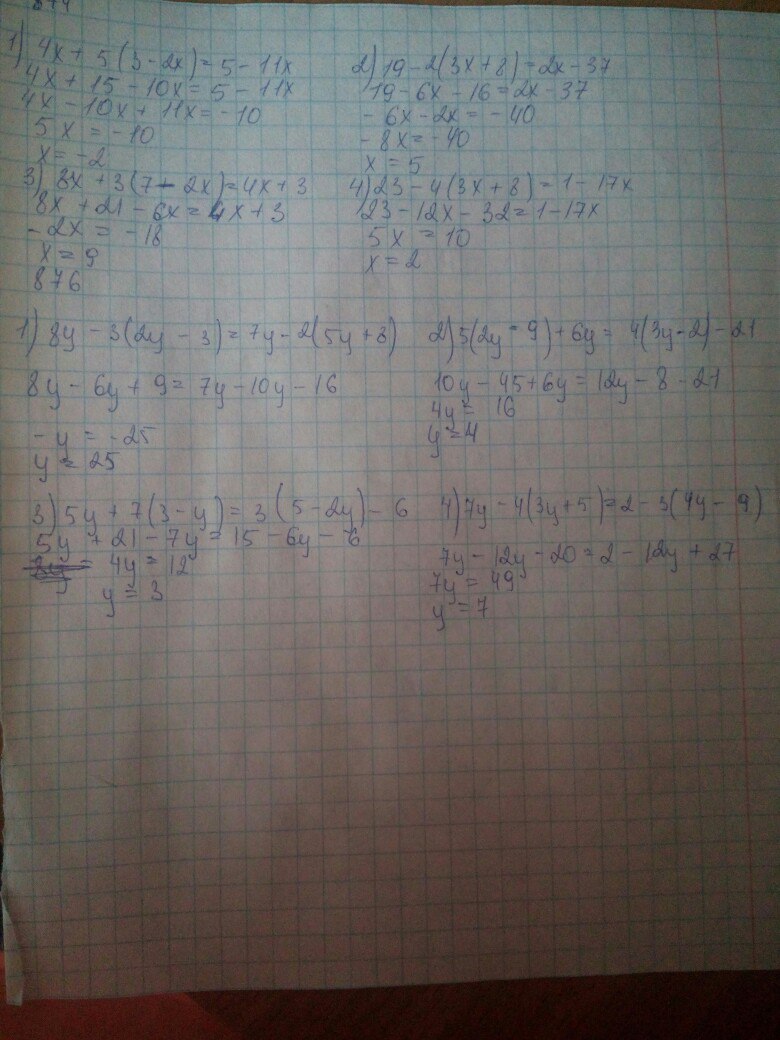 874
1) 4x + 5(3-2x) = 5 - 11x
4x + 15 - 10x = 5 - 11x
4x - 10x + 11x = -10
5x = -10
x = -2
2) 19 - 2(3x + 8) = 2x - 37
19 - 6x - 16 = 2x - 37
- 6x - 2x = - 40
- 8x = - 40
x = 5
3) 8x + 3(7 - 2x) = 4x + 3
8x + 21 - 6x = 4x + 3
- 2x = - 18
x = 9
4) 23 - 4(3x + 8) = 1 - 17x
23 - 12x - 32 = 1 - 17x
5x = 10
x = 2
876
1) 8y - 3(2y - 3) = 7y - 2(5y + 8)
8y - 6y + 9 = 7y - 10y - 16
- y = - 25
y = 25
2) 5(2y - 9) + 6y = 4(3y - 2) - 21
10y - 45 + 6y = 12y - 8 - 21
4y = 16
y = 4
3) 5y + 7(3 - y) = 3(5 - 2y) - 6
5y + 21 - 7y = 15 - 6y - 6
4y = 12
y = 3
4) 7y - 4(3y + 5) = 2 - 3(4y - 9)
7y - 12y - 20 = 2 - 12y + 27
7y = 49
y = 7